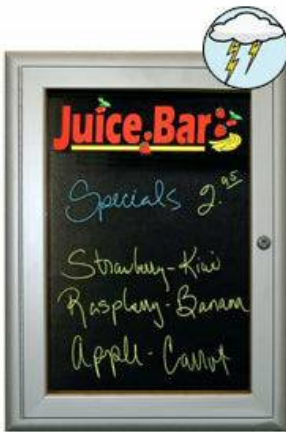 Juice Bar
Specials 2.95
Strawberry-Kiwi
Raspberry-Banana
Apple-Carrot